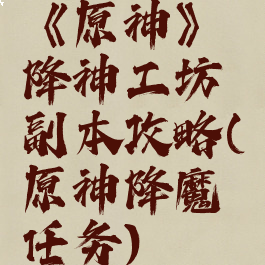 《原神》
降神工坊
副本攻略(
原神降魔
任务)